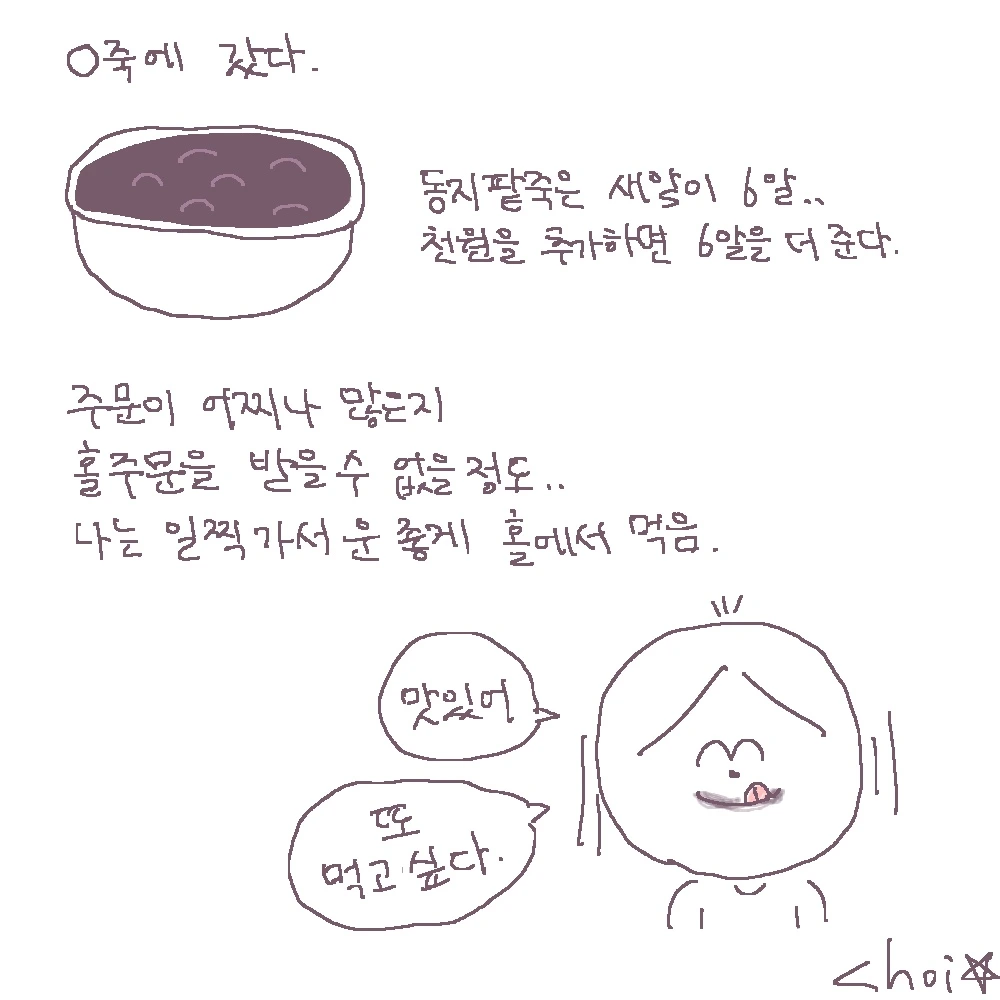 O죽에 갔다.
동지팥죽은 새알이 6알..
천원을 추가하면 6알을 더 준다.
주문이 어찌나 많은지
홀주문을 받을수 없을정도..
나는 일찍가서 운좋게 홀에서 먹음.
맛있어
또
먹고싶다.
Choi☆